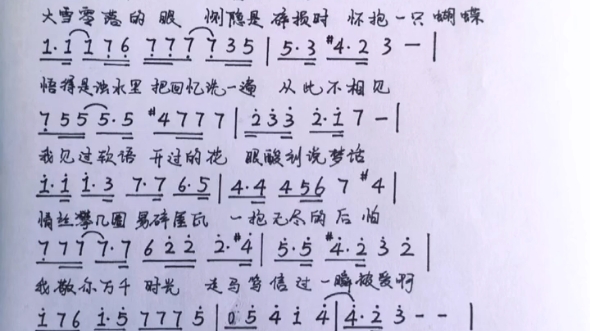 大雪零落的眼 恻隐是碎损时 怀抱一只蝴蝶
1·1 1 7 6 7 7 7 7 3 5 | 5·3 #4·2 3 — |
悟得是浊水里 把回忆洗一遍 从此不相见
7 5 5 5·5 #4 7 7 7 | 2 3 3 2·1 7 — |
我见过软语 开过的花 眼酸别说梦话
1·1 1·3 7·7 6·5 | 4·4 4 5 6 7 #4 |
情丝攀几圈 易碎屋瓦 一抱无尽的后怕
7 7 7 7·7 6 2 2 2·#4 | 5·5 #4·2 3 2 |
我敬你万千 时光 走马等信过一瞬被爱啊
1 7 6 1·5 7 7 7 5 | 0 5 4 1 4 | 4·2 3 - - |